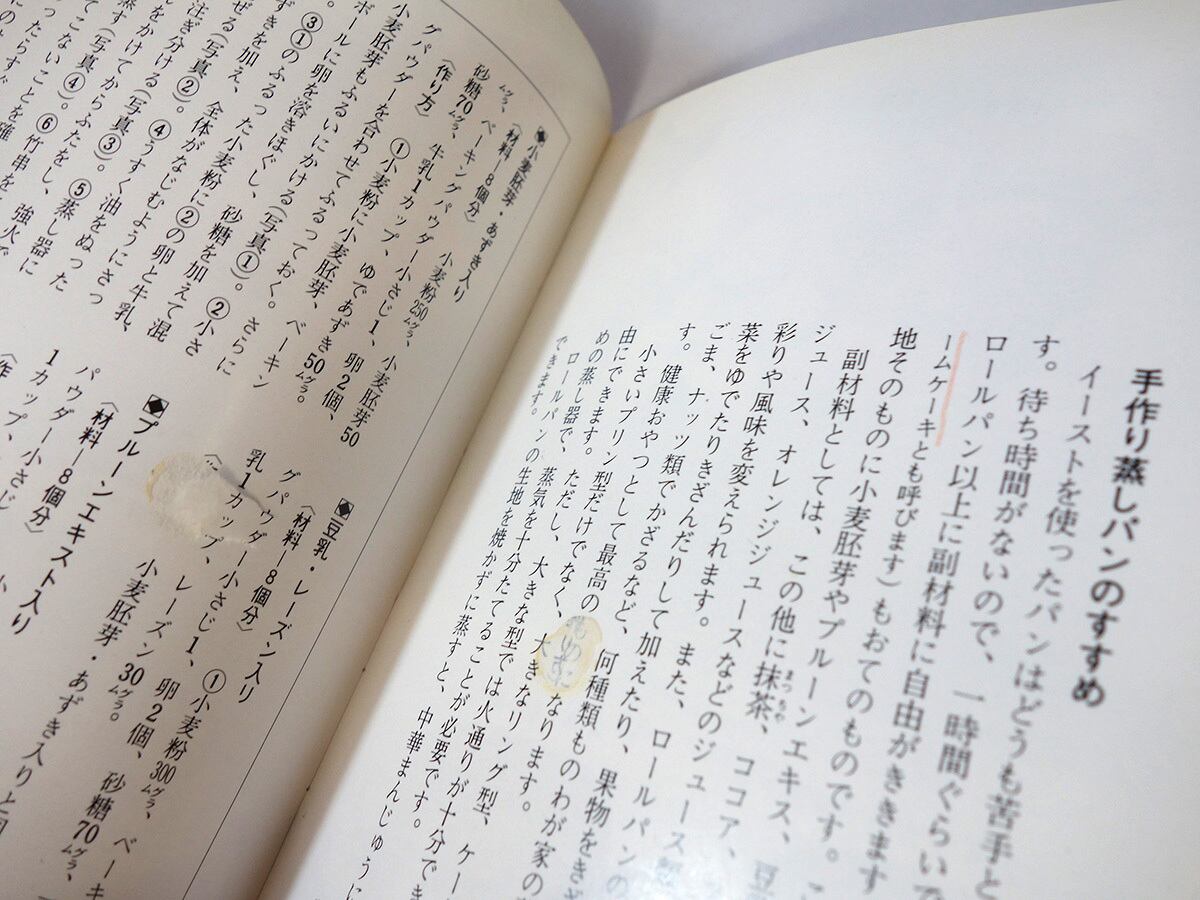 手作り蒸しパンのすすめ
イーストを使ったパンはどうも苦手と
す。待ち時間がないので、一時間ぐらいで
ロールパン以上に副材料に自由がききます
ームケーキとも呼びます）もおてのものです。こ
地そのものに小麦胚芽やプルーンエキス、豆
副材料としては、この他に抹茶、ココア、
ジュース、オレンジジュースなどのジュース類
彩りや風味を変えられます。また、ロールパンの
菜をゆでたりきざんだりして加えたり、果物をきざ
ごま、ナッツ類でかざるなど、何種類ものわが家の
す。健康おやつとして最高の
小さいプリン型だけでなく、大きなリング型、ケー
由にできます。ただし、大きな型では火通りが十分でき
蒸し器で、蒸気を十分たてることが必要です。
できます。ロールパンの生地を焼かずに蒸すと、中華まんじゅうに
◆小麦胚芽・あずき入り
〈材料―8個分〉　小麦粉250グラム、小麦胚芽50
グラム、ベーキングパウダー小さじ1、卵2個、
砂糖70グラム、牛乳1カップ、ゆであずき50グラム。
〈作り方〉　①小麦粉に小麦胚芽、ベーキン
グパウダーを合わせてふるっておく。さらに
小麦胚芽もふるいにかける（写真①）。②小さ
ボールに卵を溶きほぐし、砂糖を加えて混
③①のふるった小麦粉に②の卵と牛乳、
ずきを加え、全体がなじむようにさっ
ぜる（写真②）。④うすく油をぬった
注ぎ分ける（写真③）。⑤蒸し器に
をかけてからふたをし、強火で
蒸す（写真④）。⑥竹串を
てこないことを確
ったらすぐ
◆豆乳・レーズン入り
〈材料―8個分〉　①小麦粉300グラム、ベーキ
グパウダー小さじ1、卵2個、砂糖70グラム、
乳1カップ、レーズン30グラム。
小麦胚芽・あずき入りと同
◆プルーンエキスト入り
〈材料―8個分〉　小
パウダー小さじ
1カップ、
〈作